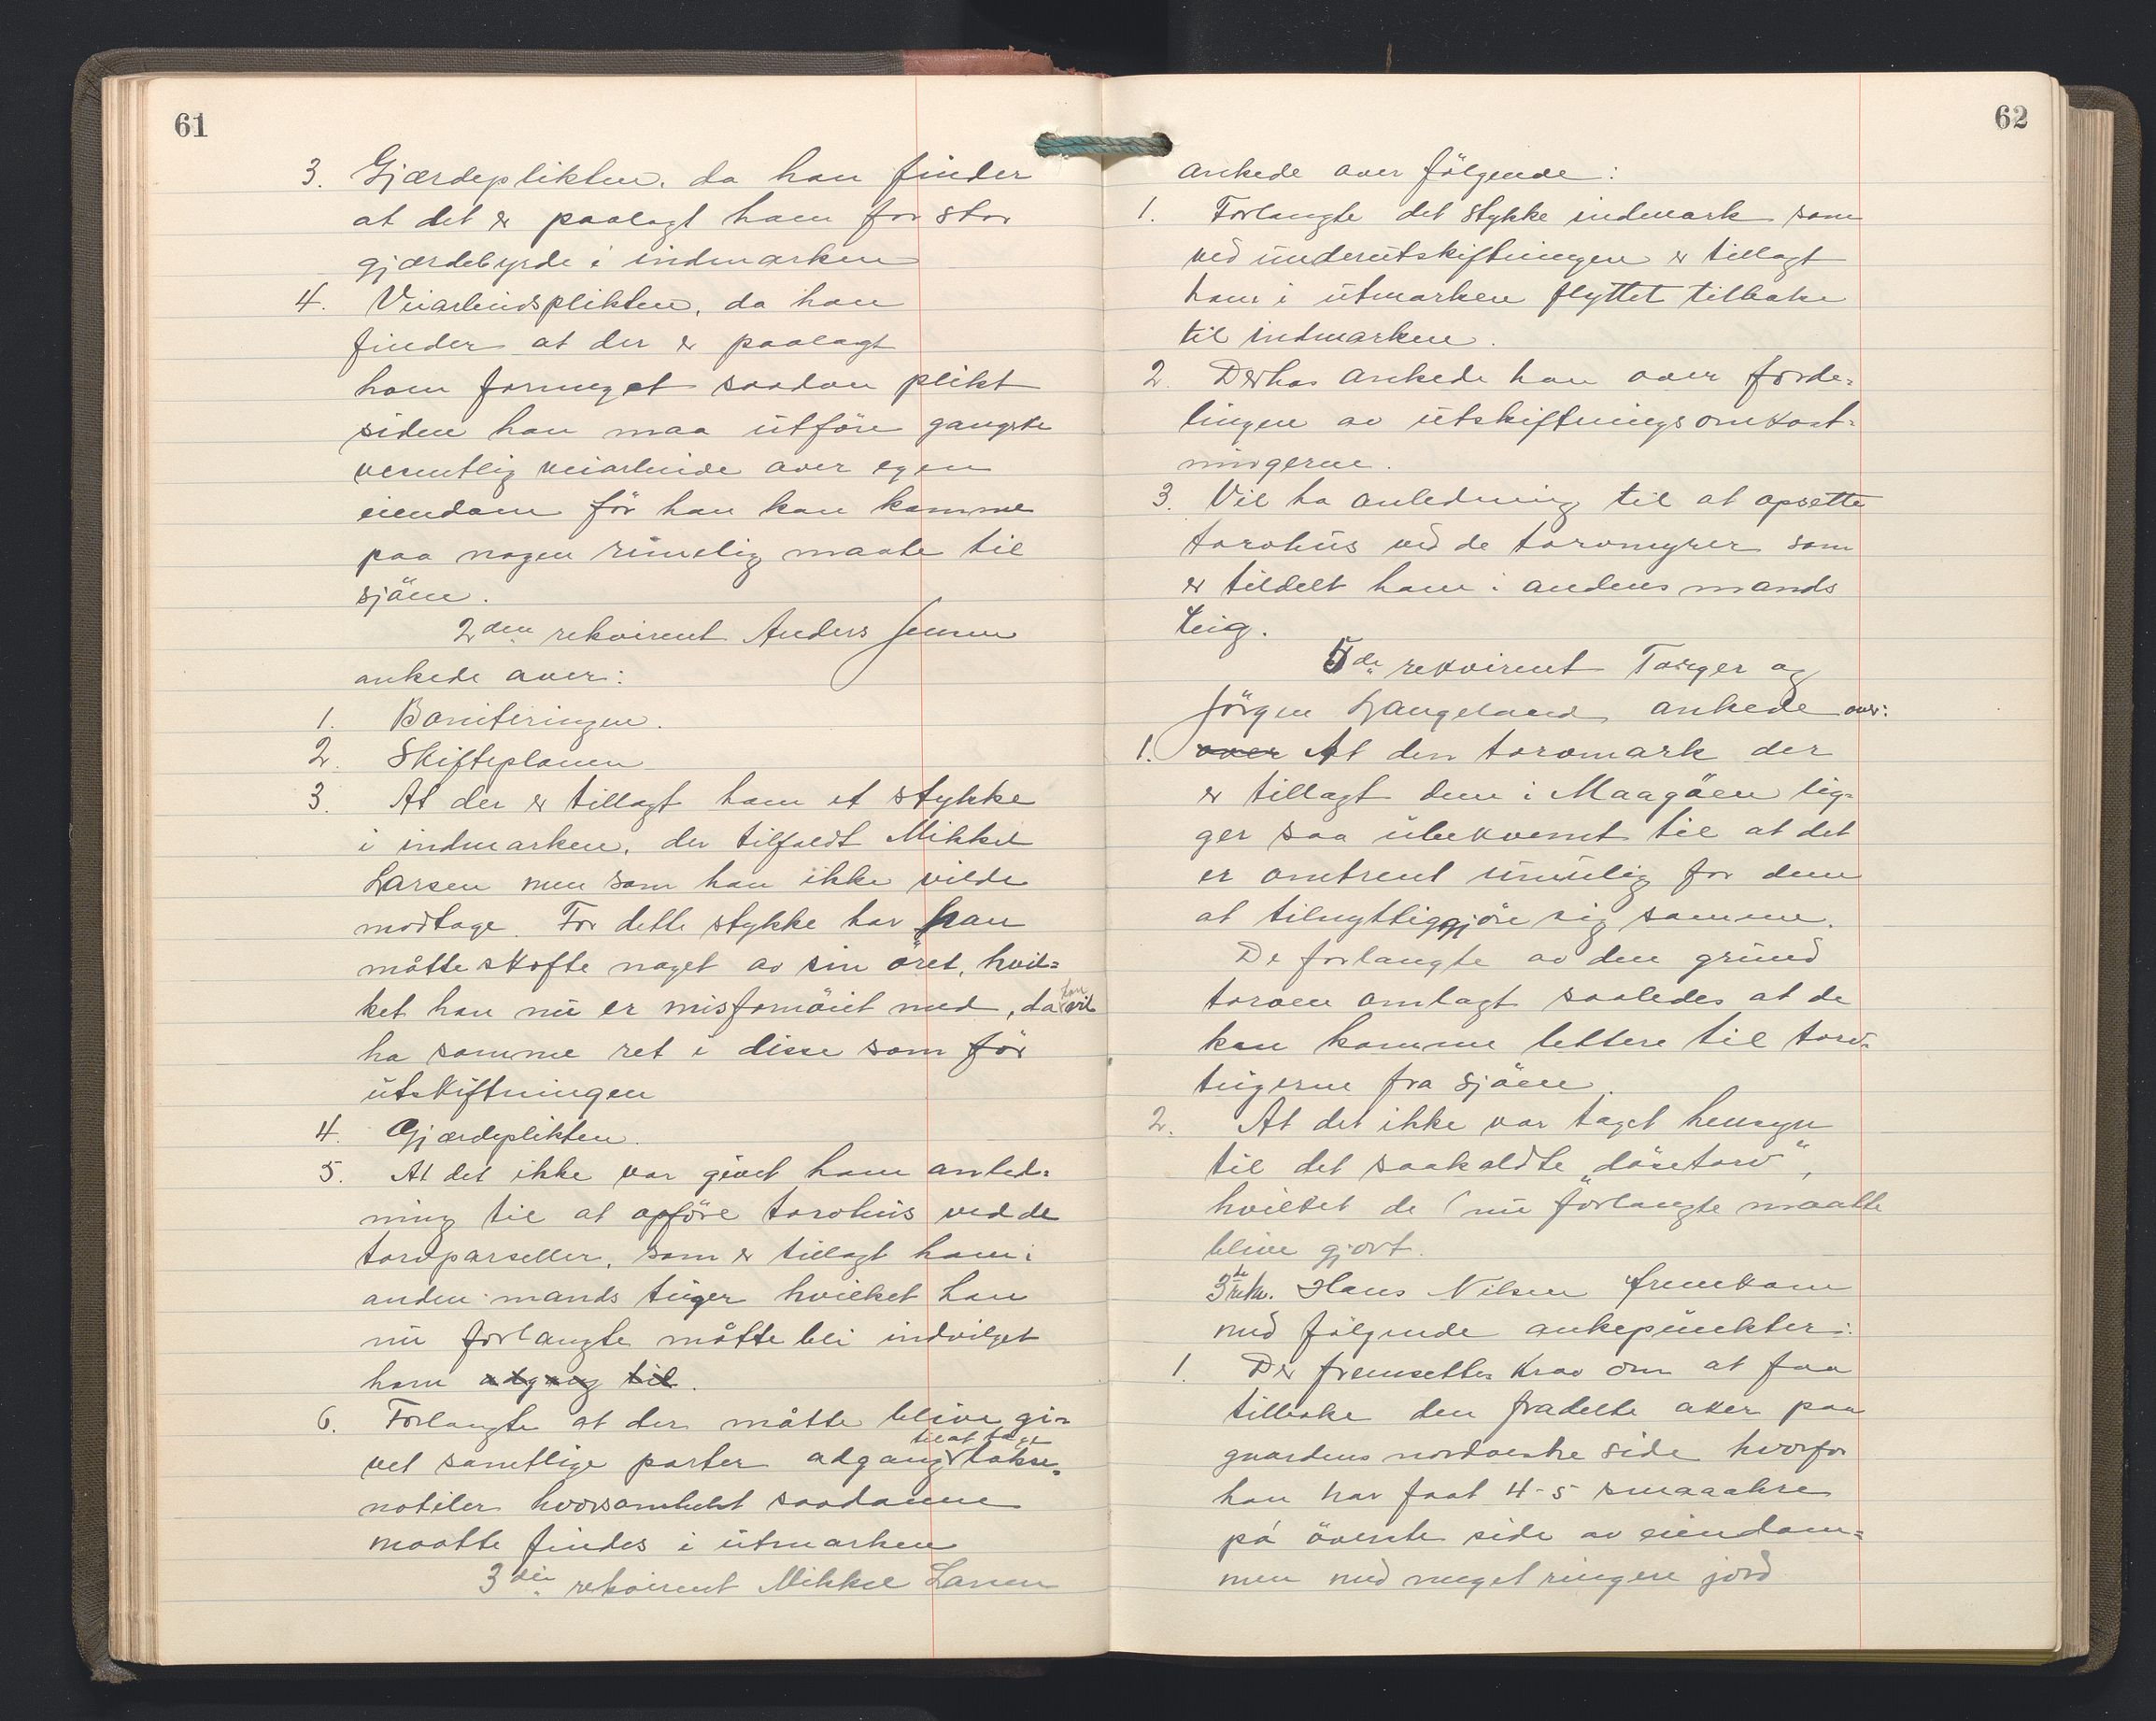 61
3. Gjærdeplikten, da han finder
at det er paalagt ham for stor
gjærdebyrde i indmarken
4. Veiarbeidsplikten, da han
finder at der er paalagt
ham formeget saadan plikt
siden han maa utföre ganske
vesentlig veiarbeide over egen
eiendom för han kan komme
paa nogen rimelig maate til
sjöen.
2den rekvirent Anders Jensen
ankede over:
1. Boniteringen.
2. Skifteplanen
3. At der er tillagt ham et stykke
i indmarken, der tilfaldt Mikkel
Larsen men som han ikke vilde
modtage. For dette stykke har han
måtte skofte noget av sin öret, hvil=
ket han nu er misfornöiet med, da han vil
ha samme ret i disse som för
utskiftningen
4. Gjærdeplikten.
5. At det ikke var givet ham anled=
ning til at opföre torvhus ved de
torvparseller, som er tillagt ham i
anden mands teiger hvilket han
nu forlangte måtte bli indvilget
ham adgang til.
6. Forlangte at der måtte blive gi=
vet samtlige parter adgang til at ta
notiler hvorsomhelst saadanne
maatte findes i utmarken
3die rekvirent Mikkel Larsen
62
ankede over fölgende:
1. Forlangte det stykke indmark som
ved underutskiftningen er tillagt
ham i utmarken flyttet tilbake
til indmarken.
2. Derhos ankede han over forde=
lingen av utskiftningsomkost=
ningerne.
3. Vil ha anledning til at opsette
torvhus ved de torvmyrer som
er tildelt ham i andens mands
teig.
5de rekvirent Torger og
Jörgen Langeland ankede over:
1. over At den torvmark der
er tillagt dem i Maagöen lig=
ger saa ubekvemt til at det
er omtrent umulig for dem
at tilnyttiggjöre sig samme.
De forlangte av den grund
torven omlagt saaledes at de
kan komme lettere til torv=
teigerne fra sjöen.
2. At det ikke var taget hensyn
til det saakaldte "dösetorv",
hvilket de nu forlangte maatte
blive gjort.
3de rekv. Hans Nilsen fremkom
med fölgende ankepunkter:
1. Der fremsettes krav om at faa
tilbake den fradelte aker paa
gaardens nordvestre side hvorfor
han har faat 4-5 smaaakre
på överste side av eiendom=
men med meget ringere jord